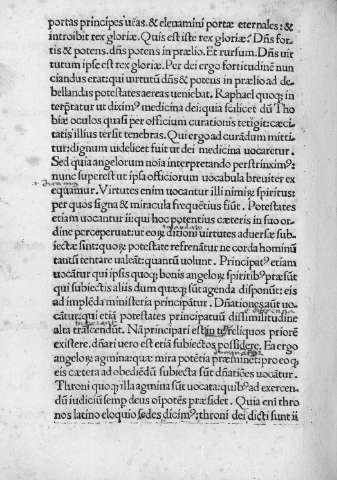 portas principes ur̃as. & eleuamini portæ eternales: &
introibit rex gloriæ. Quis est iste rex gloriæ? Dñs for-
tis & potens. dñs potens in prælio. Et rursum. Dñs uir
tutum ipse est rex gloriæ. Per dei ergo fortitudinẽ nun
ciandus erat: qui uirtutũ dñs & potens in prælio ad de-
bellandas potestates aereas ueniebat. Raphael quoq; in
terp̃tatur ut diximꝰ medicina dei: quia scilicet dũ Tho
biæ oculos quasi per officium curationis tetigit: cæci-
tatis illius tersit tenebras. Qui ergo ad curãdum mitti
tur: dignum uidelicet fuit ut dei medicina uocaretur.
Sed quia angelorum noĩa interpretando perstrinximꝰ:
nunc superest ut ipsa officiorum uocabula breuiter ex
equamur. Virtutes enim uocantur illi nimirꝝ spiritus:
per quos signa & miracula frequẽtius fiũt. Potestates
etiam uocantur ii: qui hoc potentius cæteris in suo or
dine perceperunt: ut eorꝝ ditioni uirtutes aduersæ sub
iectæ sint: quorꝝ potestate refrenãtur ne corda hominũ
tantũ tentare ualeãt: quantũ uolunt. Principatꝰ etiam
uocãtur qui ipsis quoq; bonis angelorꝝ spiritibꝰ præsũt
qui subiectis aliis dum quæq; sũt agenda disponũt: eis
ad implẽda ministeria principãtur. Dñationes aũt uo-
cãtur: qui etiã potestates principatuũ dissimilitudine
alta trãscendũt. Nã principari est in reliquos priorẽ
existere. dñari uero est etiã subiectos possidere. Ea ergo
angelorꝝ agmina: quæ mira potẽtia præminent: pro eo q;
eis cætera ad obediẽdũ subiecta sũt dñatiões uocãtur.
Throni quoq; illa agmina sũt uocata: quibꝰ ad exercen-
dũ iudiciũ semp deus oĩpotẽs præsidet. Quia enĩ thro
nos latino eloquio sedes dicimꝰ: throni dei dicti sunt ii